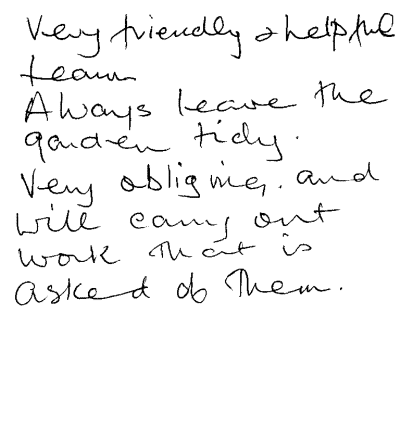 Very friendly & helpful
team
Always leave the
garden tidy.
Very obliging. and
will carry out
work that is
asked of them.